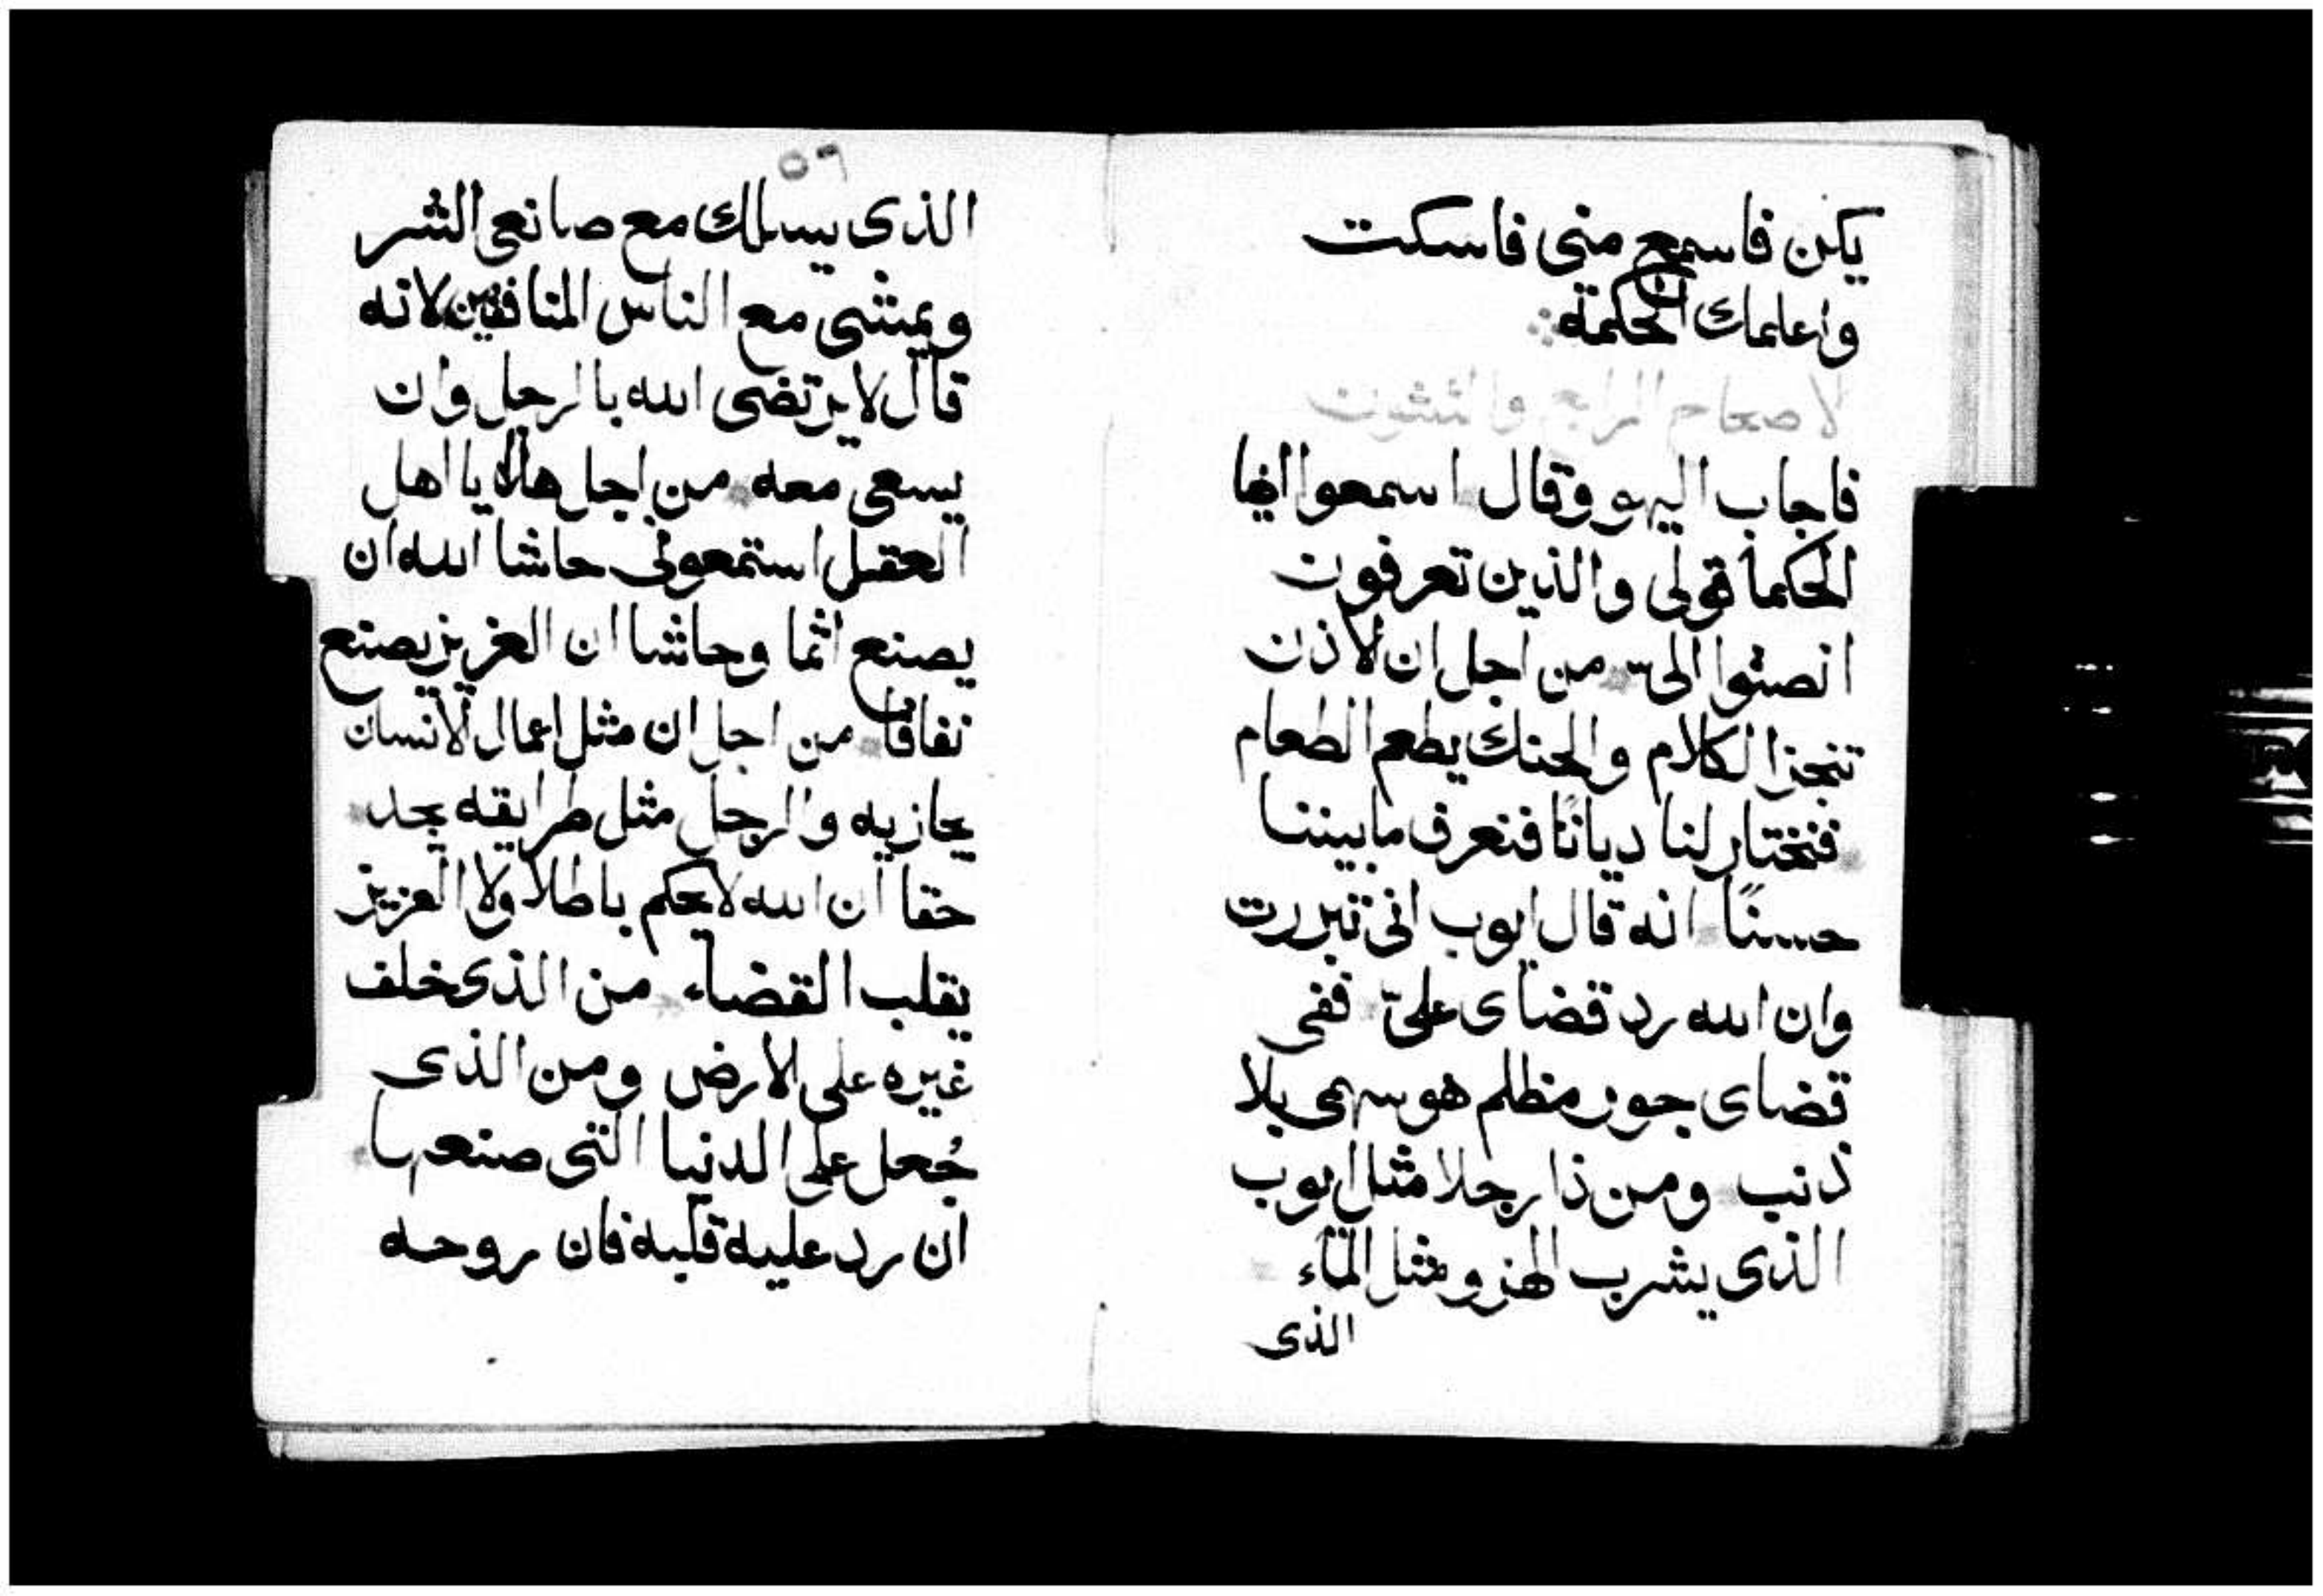 يكن فاسمع منى فاسكت
واعلمك الحكمة
لاصحاح الرابع والثلثون
فاجاب اليهو وقال اسمعوا ايها
الحكما قولى والذين تعرفون
انصتوا الىّ من اجل ان لاذن
تنجز الكلام والحنك يطعم الطعام
فنختار لنا ديانًا فنعرف ما بيننا
حسنًا انه قال ايوب انى تبررت
وان الله رد قضاى علىّ ففى
قضاى جور مظلم هو سهمى بلا
ذنب ومن ذا رجلا مثل ايوب
الذى يشرب الهزو مثل الماء
الذى
٥٦
الذى يسلك مع صانعى الشر
ويمشى مع الناس المنافقين لانه
قال لا يرتضى الله بالرجل وان
يسعى معه من اجل هذا يا اهل
العقل استمعونى حاشا الله ان
يصنع اثما وحاشا ان العزيز يصنع
نفاقا من اجل ان مثل اعمال لانسان
يجازيه والرجل مثل طرايقه يجد
حقا ان الله لا يحكم باطلا ولا العزيز
يقلب القضاء من الذى خلف
غيره على الارض ومن الذى
جُعل على الدنيا التى صنعها
ان رد عليه قلبه فان روحه